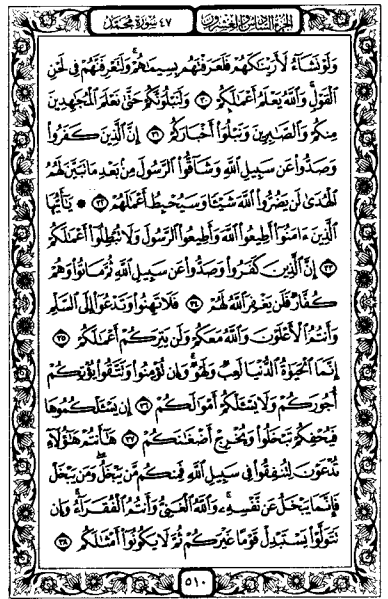 الجزء السادس والعشرون ٤٧ سورة محمد
وَلَوْ نَشَآءُ لَأَرَيْنَٰكَهُمْ فَلَعَرَفْتَهُم بِسِيمَٰهُمْ ۚ وَلَتَعْرِفَنَّهُمْ فِى لَحْنِ
ٱلْقَوْلِ ۚ وَٱللَّهُ يَعْلَمُ أَعْمَٰلَكُمْ ٣٠ وَلَنَبْلُوَنَّكُمْ حَتَّىٰ نَعْلَمَ ٱلْمُجَٰهِدِينَ
مِنكُمْ وَٱلصَّٰبِرِينَ وَنَبْلُوَا۟ أَخْبَارَكُمْ ٣١ إِنَّ ٱلَّذِينَ كَفَرُوا۟
وَصَدُّوا۟ عَن سَبِيلِ ٱللَّهِ وَشَآقُّوا۟ ٱلرَّسُولَ مِنۢ بَعْدِ مَا تَبَيَّنَ لَهُمُ
ٱلْهُدَىٰ لَن يَضُرُّوا۟ ٱللَّهَ شَيْـًٔا وَسَيُحْبِطُ أَعْمَٰلَهُمْ ٣٢ ۞ يَٰٓأَيُّهَا
ٱلَّذِينَ ءَامَنُوٓا۟ أَطِيعُوا۟ ٱللَّهَ وَأَطِيعُوا۟ ٱلرَّسُولَ وَلَا تُبْطِلُوٓا۟ أَعْمَٰلَكُمْ
٣٣ إِنَّ ٱلَّذِينَ كَفَرُوا۟ وَصَدُّوا۟ عَن سَبِيلِ ٱللَّهِ ثُمَّ مَاتُوا۟ وَهُمْ
كُفَّارٌ فَلَن يَغْفِرَ ٱللَّهُ لَهُمْ ٣٤ فَلَا تَهِنُوا۟ وَتَدْعُوٓا۟ إِلَى ٱلسَّلْمِ
وَأَنتُمُ ٱلْأَعْلَوْنَ وَٱللَّهُ مَعَكُمْ وَلَن يَتِرَكُمْ أَعْمَٰلَكُمْ ٣٥
إِنَّمَا ٱلْحَيَوٰةُ ٱلدُّنْيَا لَعِبٌ وَلَهْوٌ ۚ وَإِن تُؤْمِنُوا۟ وَتَتَّقُوا۟ يُؤْتِكُمْ
أُجُورَكُمْ وَلَا يَسْـَٔلْكُمْ أَمْوَٰلَكُمْ ٣٦ إِن يَسْـَٔلْكُمُوهَا
فَيُحْفِكُمْ تَبْخَلُوا۟ وَيُخْرِجْ أَضْغَٰنَكُمْ ٣٧ هَٰٓأَنتُمْ هَٰٓؤُلَآءِ
تُدْعَوْنَ لِتُنفِقُوا۟ فِى سَبِيلِ ٱللَّهِ فَمِنكُم مَّن يَبْخَلُ ۖ وَمَن يَبْخَلْ
فَإِنَّمَا يَبْخَلُ عَن نَّفْسِهِۦ ۚ وَٱللَّهُ ٱلْغَنِىُّ وَأَنتُمُ ٱلْفُقَرَآءُ ۚ وَإِن
تَتَوَلَّوْا۟ يَسْتَبْدِلْ قَوْمًا غَيْرَكُمْ ثُمَّ لَا يَكُونُوٓا۟ أَمْثَٰلَكُم ٣٨
٥١٠